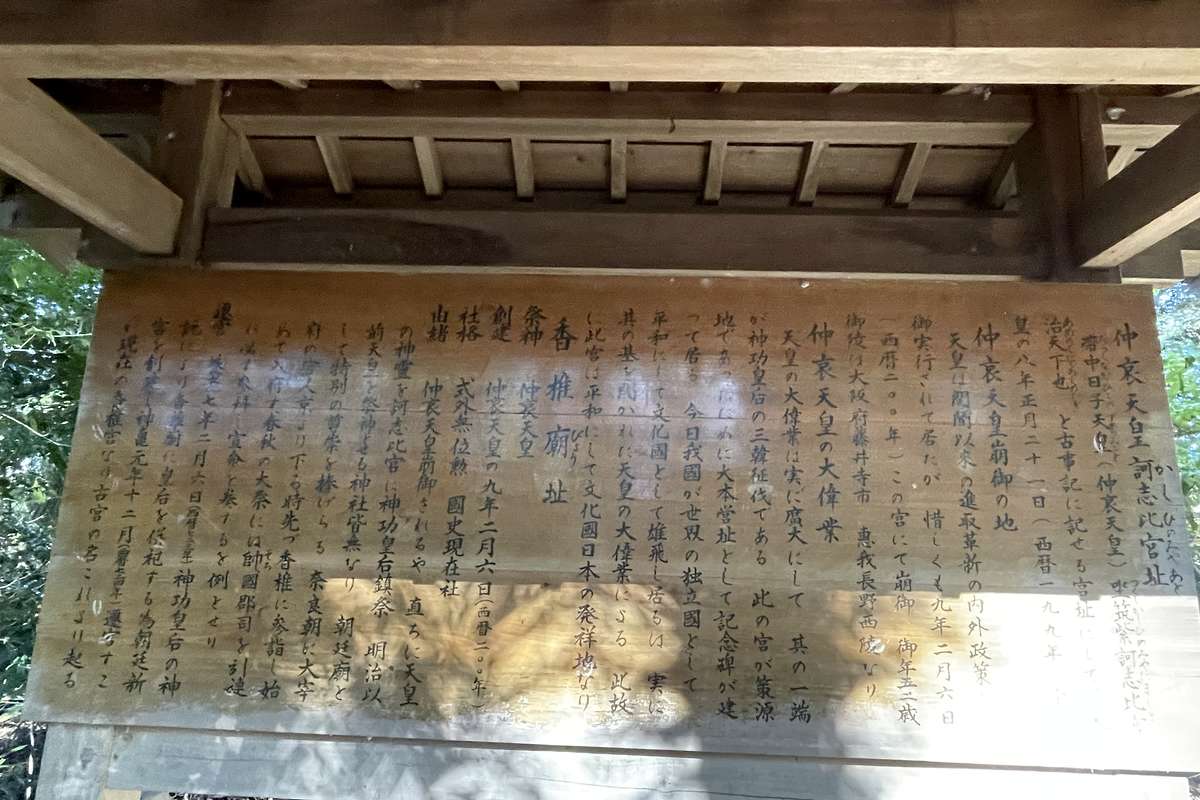 仲哀天皇訶志比宮址
かしひのみやあと
帯中日子天皇(仲哀天皇)坐筑紫訶志比宮
治天下也 と古事記に記せる宮址にして
皇の八年正月二十一日(西暦一九九年
仲哀天皇崩御の地
天皇は開闢以来の進取革新の内外政策
御実行されて居たが 惜しくも九年二月六日
(西暦二〇〇年)この宮にて崩御 御年五二歳
御陵は大阪府藤井寺市 恵我長野西陵なり
仲哀天皇の大偉業
天皇の大偉業は実に廣大にして 其の一端
が神功皇后の三韓征伐である 此の宮が策源
地であったために大本営址として記念碑が建
って居る 今日我國が世界の独立國として
平和にして文化國として雄飛し居るは 実に
其の基を開かれた天皇の大偉業による 此故
に此宮は平和にして文化國日本の発祥地なり
香椎廟址
びょう
祭神 仲哀天皇
創建 仲哀天皇の九年二月六日(西暦二〇〇年)
社格 式外無位勲 國史現在社
由緒 仲哀天皇崩御されるや 直ちに天皇
の神霊を訶志比宮に神功皇后鎮祭 明治以
前天皇を祭神せる神社皆無なり 朝廷廟と
して特別の尊崇を捧げらる 奈良朝に大宰
府の役人京より下る時先づ香椎に参詣し始
めて入府す春秋の大祭には帥國郡司を引連
宣命を奏するを例とせり
遷宮 養老七年二月六日神功皇后の神
託により香椎廟に皇后を従祀する為朝廷新
宮を創築し神亀元年十二月遷宮すこ
現在の香椎宮なり古宮の名これより起る